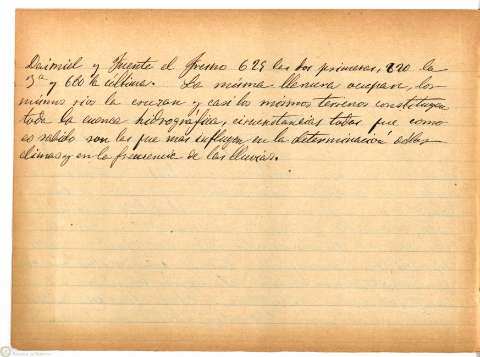 Daimiel y Fuente el Fresno 629 las dos primeras, 620 la
3ª y 660 la última. La misma llanura ocupan, los
mismos rios la cruzan y casi los mismos terrenos constituyen
toda la cuenca hidrográfica, circunstancias todas que como
es sabido son las que mas influyen en la determinación de los
climas y en la frecuencia de las lluvias.